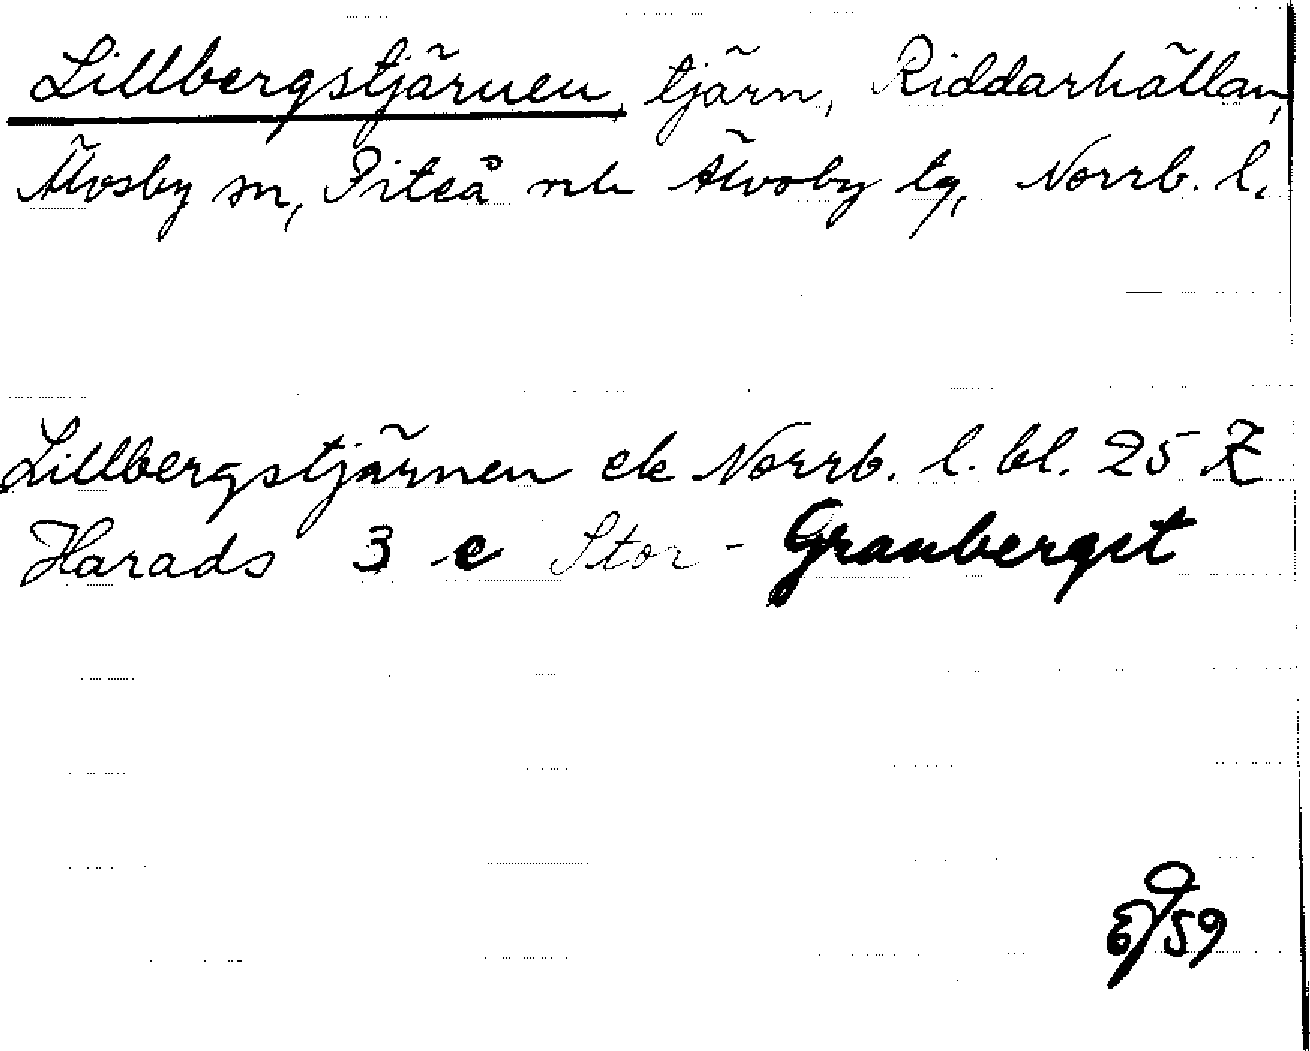 Lillbergstjärnen, tjärn, Riddarhällan,
Älvsby sn, Piteå ntr Älvsby tg, Norrb. l.
Lillbergstjärnen ek Norrb. l. bl. 25 Z
Harads 3 c Stor-Granbergst
59